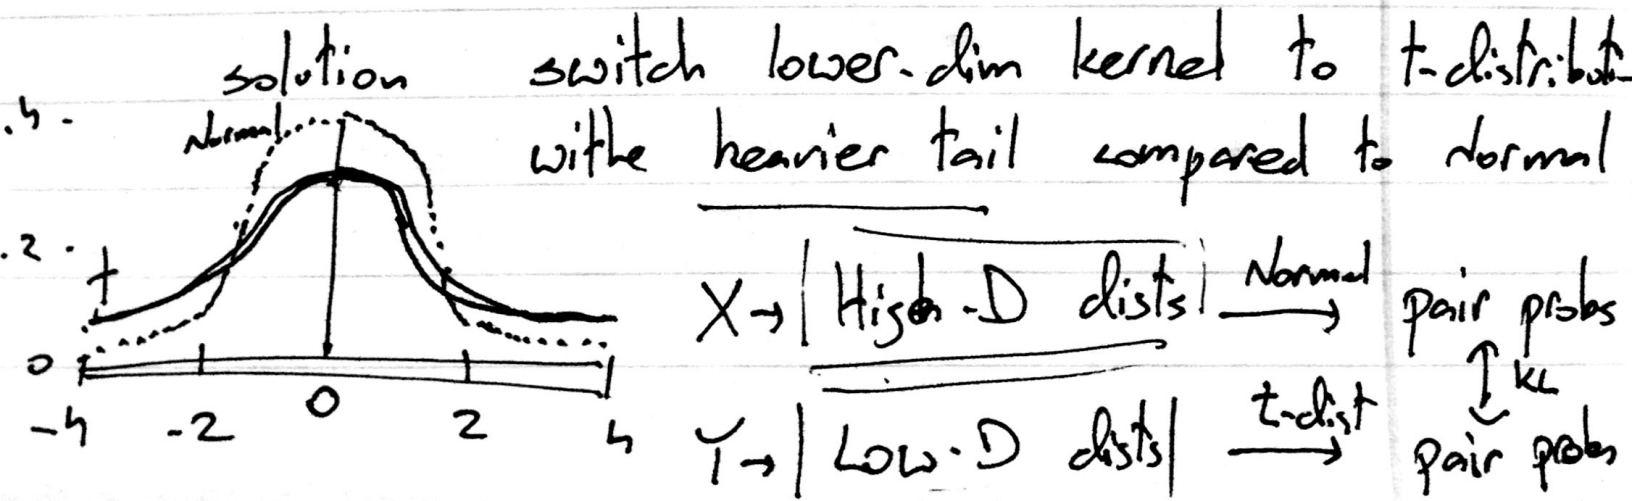 solution switch lower-dim kernel to t-distribut
.4 - Normal withe heavier tail compared to Normal
.2 -
t X → | High-D dists | Normal → pair probs
0 ↕ KL
-4 -2 0 2 4 Y → | Low-D dists | t-dist → pair probs